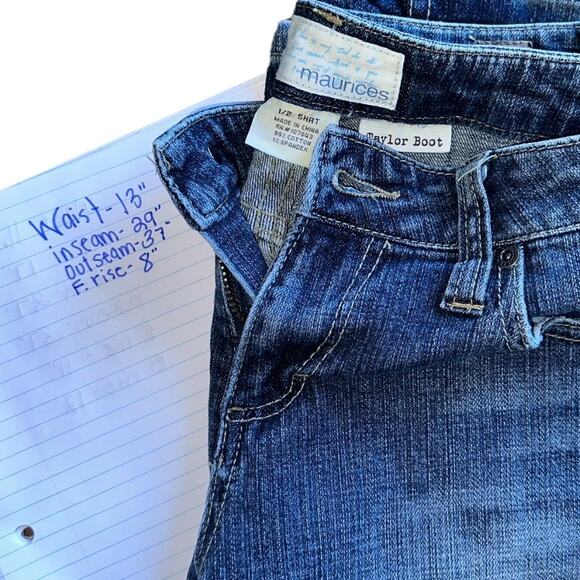 maurices
1/2 SHRT
MADE IN CHINA
RN#107803
99% COTTON
1% SPANDEX
Taylor Boot
Waist-13"
Inseam-29"
Outseam-37-
F.rise-8"